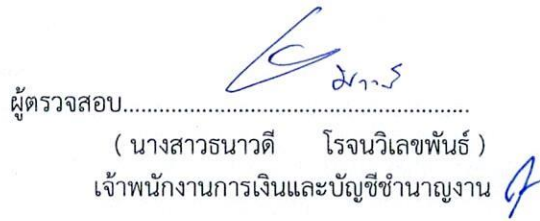 ผู้ตรวจสอบ................................................
( นางสาวธนาวดี โรจนวิเลขพันธ์ )
เจ้าพนักงานการเงินและบัญชีชำนาญงาน